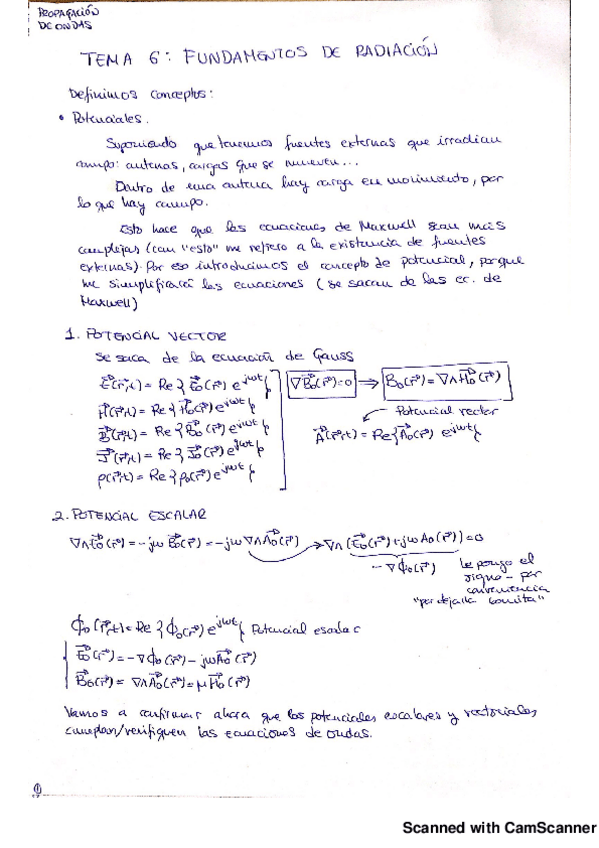 PROPAGACIÓN
DE ONDAS
TEMA 6: FUNDAMENTOS DE RADIACIÓN
Definimos conceptos:
• Potenciales.
Suponiendo que tenemos fuentes externas que irradian
campo: antenas, cargas que se mueven...
Dentro de una antena hay carga en movimiento, por
lo que hay campo.
Esto hace que las ecuaciones de Maxwell sean más
complejas (con "esto" me refiero a la existencia de fuentes
externas). Por eso introducimos el concepto de potencial, porque
me simplificará las ecuaciones (se sacan de las ec. de
Maxwell)
1. POTENCIAL VECTOR
Se saca de la ecuación de Gauss
E⃗(r⃗,t) = Re{E⃗o(r⃗) e^jωt} ∇B⃗o(r⃗)=0 → Bo(r⃗) = ∇∧A⃗o(r⃗)
H⃗(r⃗,t) = Re{H⃗o(r⃗) e^jωt} Potencial vector
B⃗(r⃗,t) = Re{B⃗o(r⃗) e^jωt} A⃗(r⃗,t) = Re{A⃗o(r⃗) e^jωt}
J⃗(r⃗,t) = Re{J⃗o(r⃗) e^jωt}
ρ(r⃗,t) = Re{ρo(r⃗) e^jωt}
2. POTENCIAL ESCALAR
∇∧E⃗o(r⃗) = -jω B⃗o(r⃗) = -jω ∇∧A⃗o(r⃗) → ∇∧(E⃗o(r⃗)+jωAo(r⃗))=0
-∇Φo(r⃗) le pongo el
signo - por
conveniencia
"por dejarla bonita"
Φo(r⃗,t) = Re{Φo(r⃗) e^jωt} Potencial escalar
E⃗o(r⃗) = -∇Φo(r⃗) - jωA⃗o(r⃗)
B⃗o(r⃗) = ∇∧A⃗o(r⃗) = μH⃗o(r⃗)
Vamos a confirmar ahora que los potenciales escalares y vectoriales
cumplan/verifiquen las ecuaciones de ondas.
Scanned with CamScanner